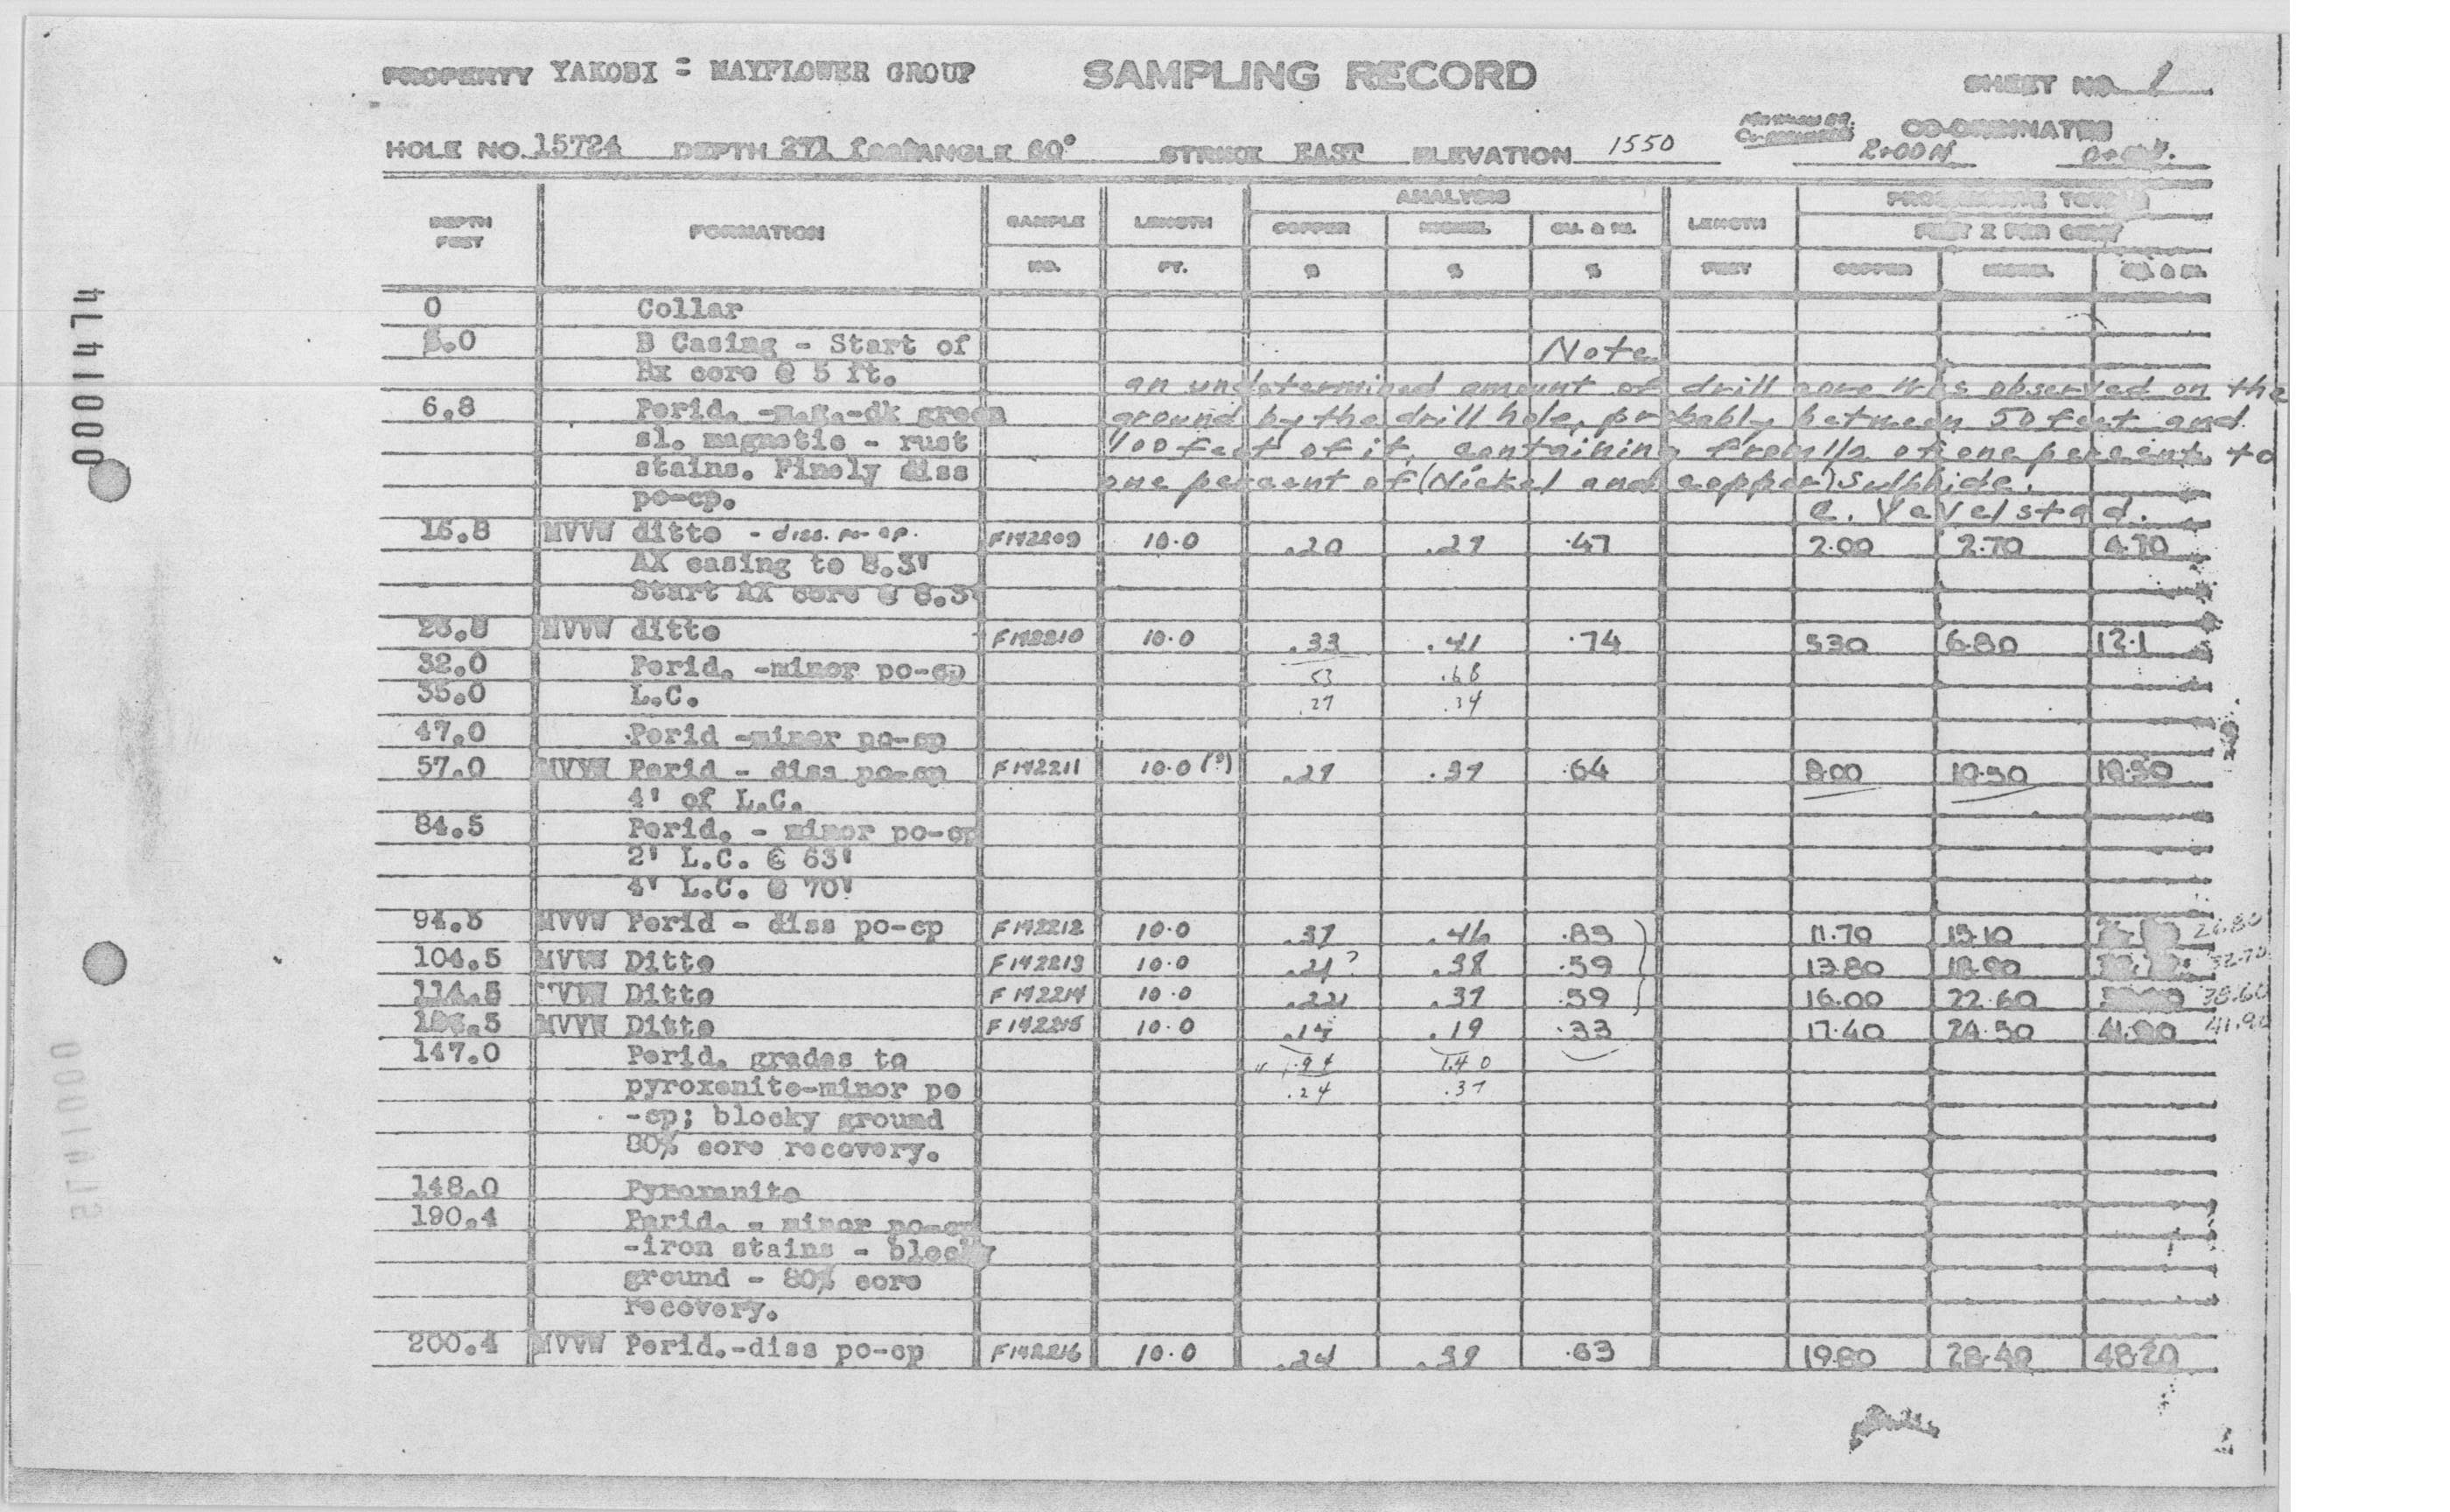 PROPERTY YAKOBI = MAYFLOWER GROUP SAMPLING RECORD SHEET NO. 1
HOLE NO. 15724 DEPTH 271 feet ANGLE 60° STRIKE EAST ELEVATION 1550 CO-ORDINATES
2+00N
ANALYSIS PROGRESSIVE TOTALS
DEPTH FORMATION SAMPLE LENGTH COPPER NICKEL CU. & NI. LENGTH FEET X PER CENT
FEET NO. FT. % % % FEET COPPER NICKEL CU. & NI.
0 Collar
5.0 B Casing - Start of Note
Bx core @ 5 ft. an undetermined amount of drill core was observed on the
6.8 Perid. -m.g.-dk green ground by the drill hole, probably between 50 feet and
sl. magnetic - rust 100 feet of it, containing from 1/2 of one percent to
stains. Finely diss one percent of (Nickel and copper) sulphide.
po-cp.
16.8 MVVW ditto - diss. po-cp. F142209 10.0 .20 .27 .47 2.00 2.70 4.70
AX casing to 8.3'
Start AX core @ 8.3'
26.8 MVVW ditto F142210 10.0 .33 .41 .74 5.30 6.80 12.1
32.0 Perid. -minor po-cp 53 .68
35.0 L.C. .27 .34
47.0 Perid -minor po-cp
57.0 MVVW Perid - diss po-cp F142211 10.0 (?) .27 .37 .64 8.00 10.50 18.50
4' of L.C.
84.5 Perid. - minor po-cp
2' L.C. @ 63'
4' L.C. @ 70'
94.5 MVVW Perid - diss po-cp F142212 10.0 .37 .46 .83 11.70 15.10 26.80
104.5 MVVW Ditto F142213 10.0 .21? .38 .59 13.80 18.90 32.70
114.5 MVVW Ditto F142214 10.0 .22 .37 .59 16.00 22.60 38.60
MVVW Ditto F142215 10.0 .14 .19 .33 17.40 24.50 41.90 41.90
147.0 Perid. grades to 1.40
pyroxenite-minor po .24 .37
-cp; blocky ground
80% core recovery.
148.0 Pyroxenite
190.4 Perid. - minor po-cp
-iron stains - blocky
ground - 80% core
recovery.
200.4 MVVW Perid.-diss po-cp F142216 10.0 .24 .39 .63 19.80 28.40 48.20